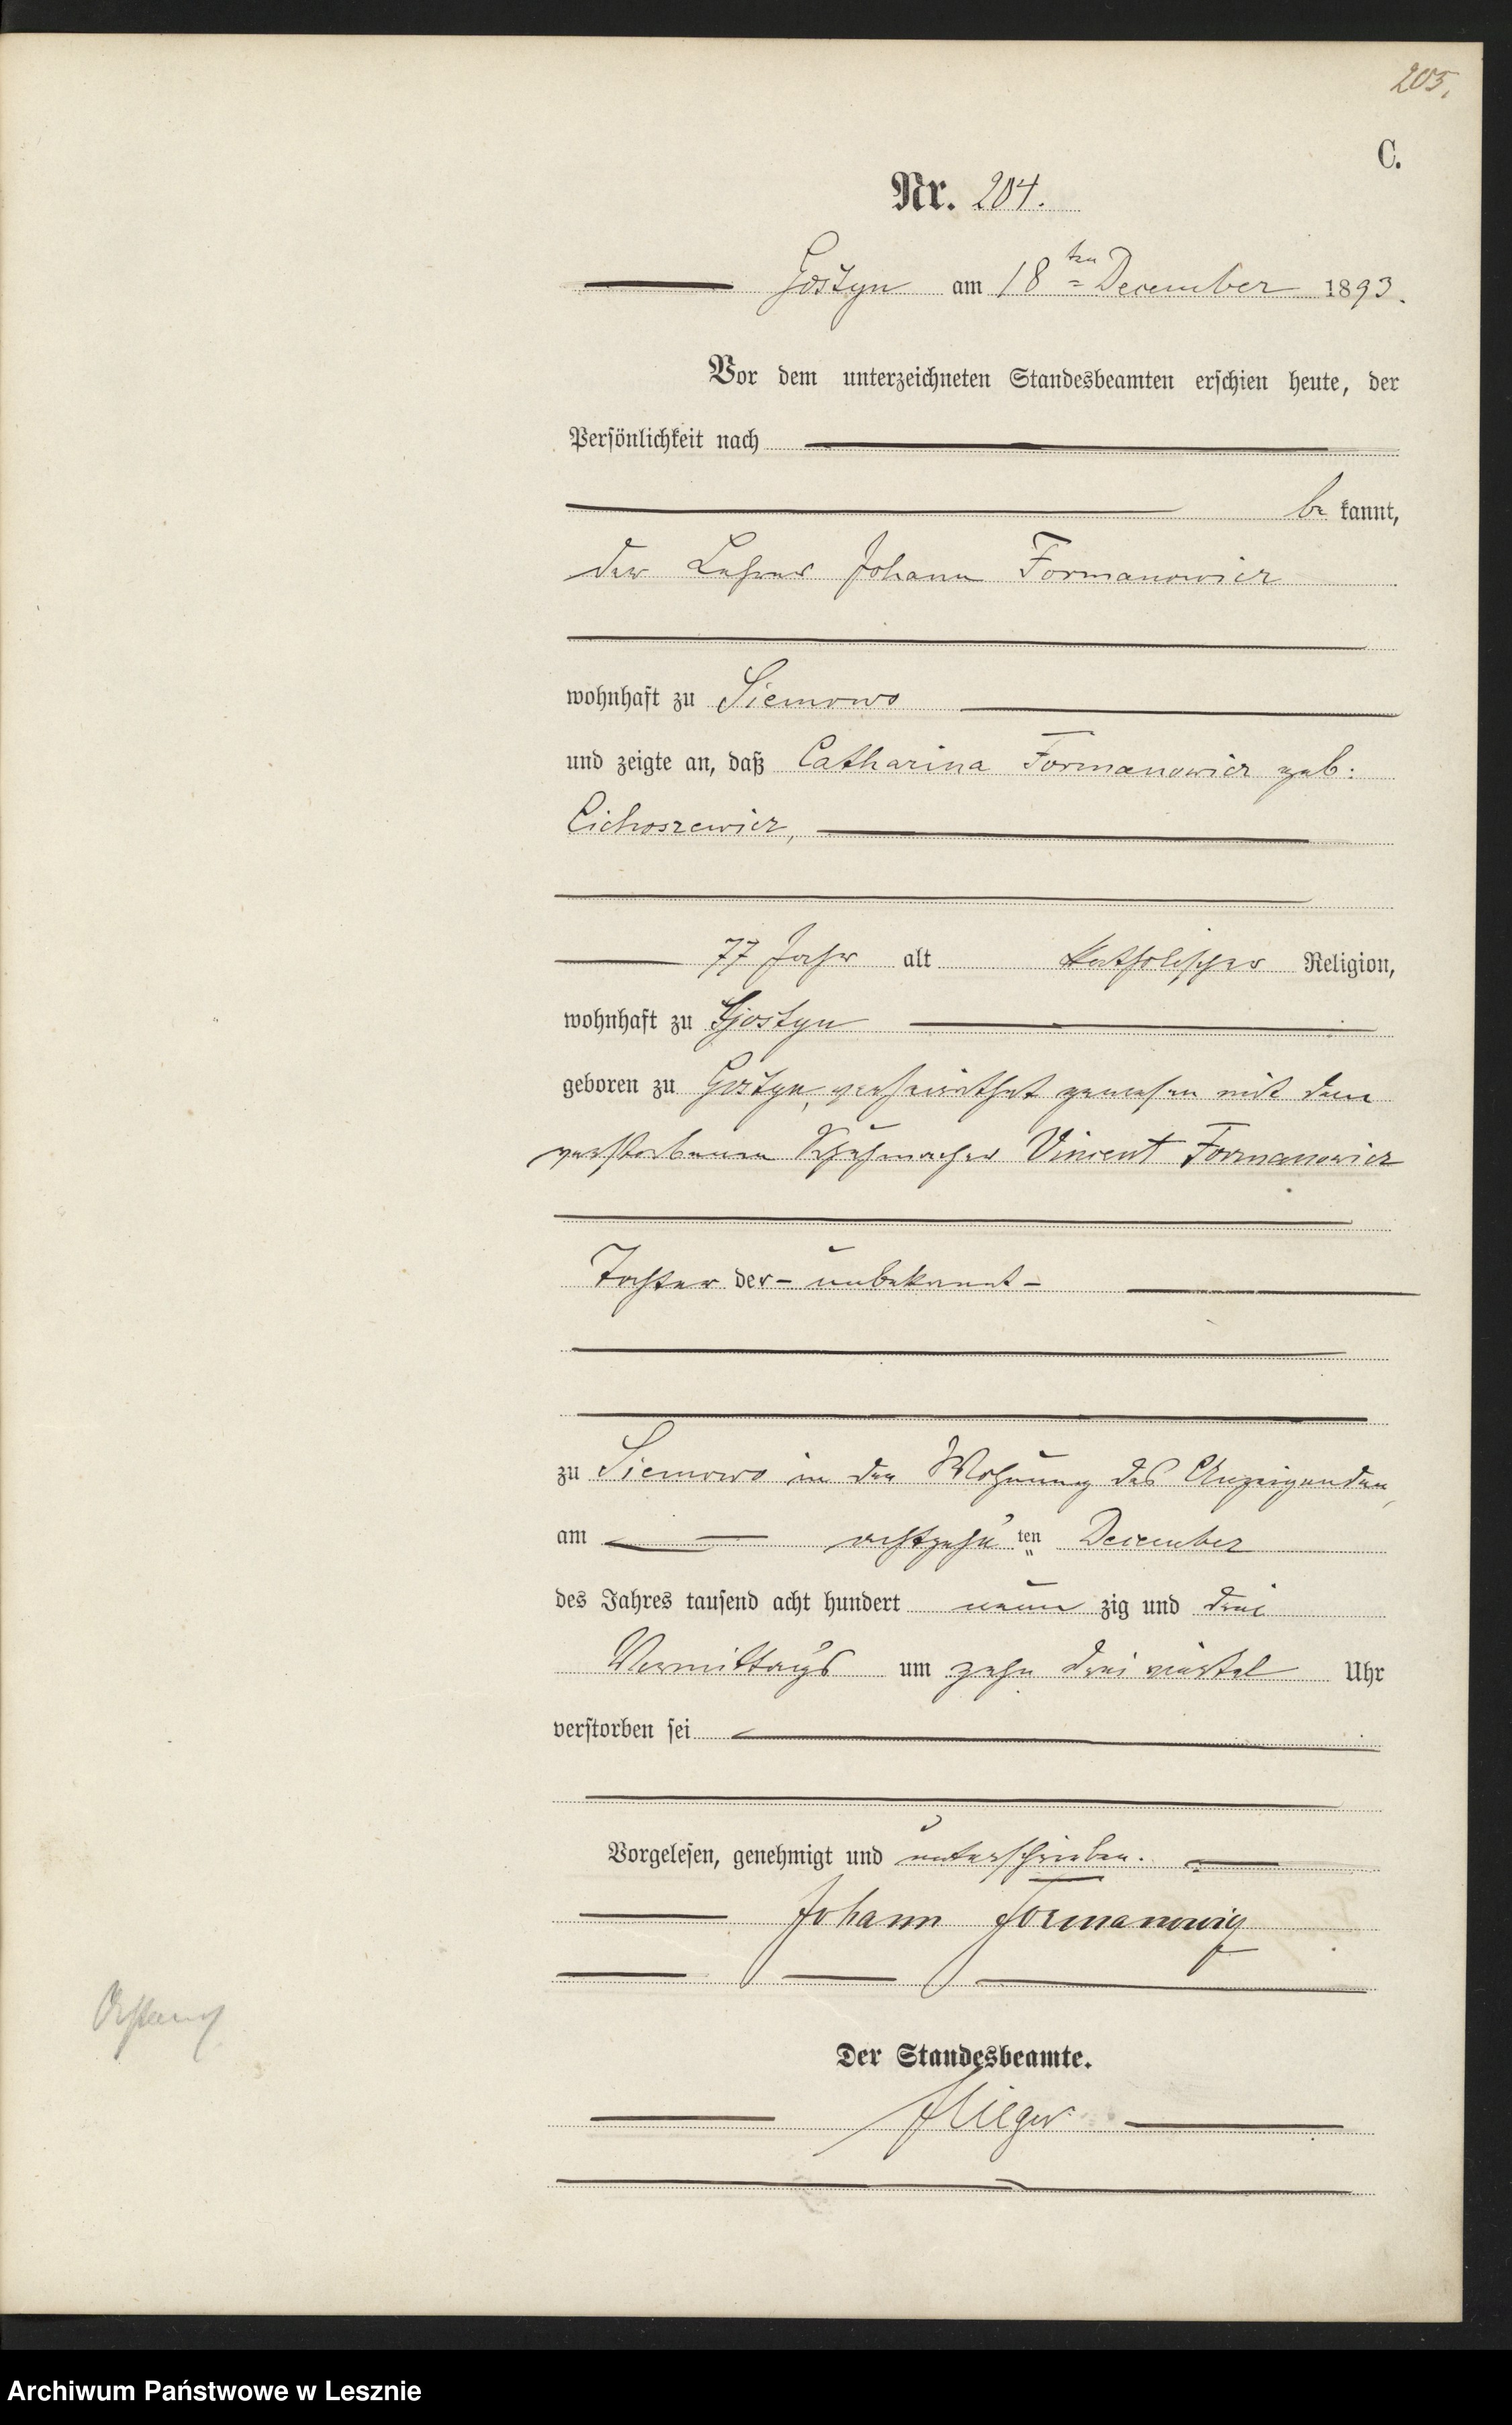 205.
C.
Nr. 204.
Gostyn am 18ten December 1893.
Vor dem unterzeichneten Standesbeamten erschien heute, der
Persönlichkeit nach
be kannt,
der Lehrer Johann Formanowicz
wohnhaft zu Siemowo
und zeigte an, daß Catharina Formanowicz geb:
Cichoszewicz,
77 Jahr alt katholischer Religion,
wohnhaft zu Gostyn
geboren zu Gostyn, verheirathet gewesen mit dem
verstorbenen Schuhmacher Vincent Formanowicz
Tochter der - unbekannt -
zu Siemowo in der Wohnung des Anzeigenden,
am achtzehnten December
des Jahres tausend acht hundert neun zig und drei
Vormittags um zehn drei viertel Uhr
verstorben sei
Vorgelesen, genehmigt und unterschrieben.
Johann Formanowicz
Der Standesbeamte.
Flieger
Archiwum Państwowe w Lesznie